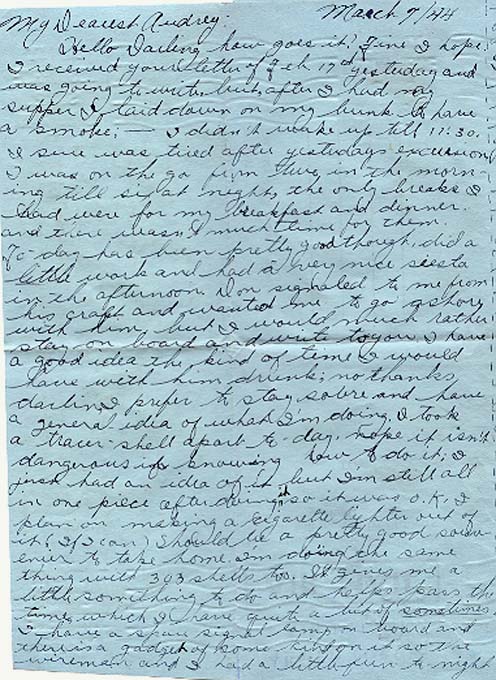 March 7/44
My Dearest Audrey:
Hello Darling how goes it? Fine I hope.
I received your letter of Feb 17th yesterday and
was going to write but after I had my
supper I laid down on my bunk to have
a smoke; — I didn't wake up till 11:30.
I sure was tired after yesterdays excursion
I was on the go from five in the morn-
ing till six at night, the only breaks I
had were for my breakfast and dinner
and there wasn't much time for them.
To-day has been pretty good though, did a
little work and had a very nice siesta
in the afternoon. Don signaled to me from
his craft and wanted me to go ashore
with him, but I would much rather
stay on board and write to you. I have
a good idea the kind of time I would
have with him drunk; no thanks
darling I prefer to stay sobre and have
a general idea of what I'm doing. I took
a tracer-shell apart to-day, nope it isn't
dangerous if knowing how to do it; I
just had an idea of it but I'm still all
in one piece after doing it so it was O.K. I
plan on making a cigarette lighter out of
it (If I can) Should be a pretty good souv-
enier to take home. I'm doing the same
thing with 303 shells too. It gives me a
little something to do and helps pass the
time which I have quite a bit of sometimes
I have a spare signal lamp on board and
there is a gadget of some kind on it so the
wireman and I had a little fun to-night